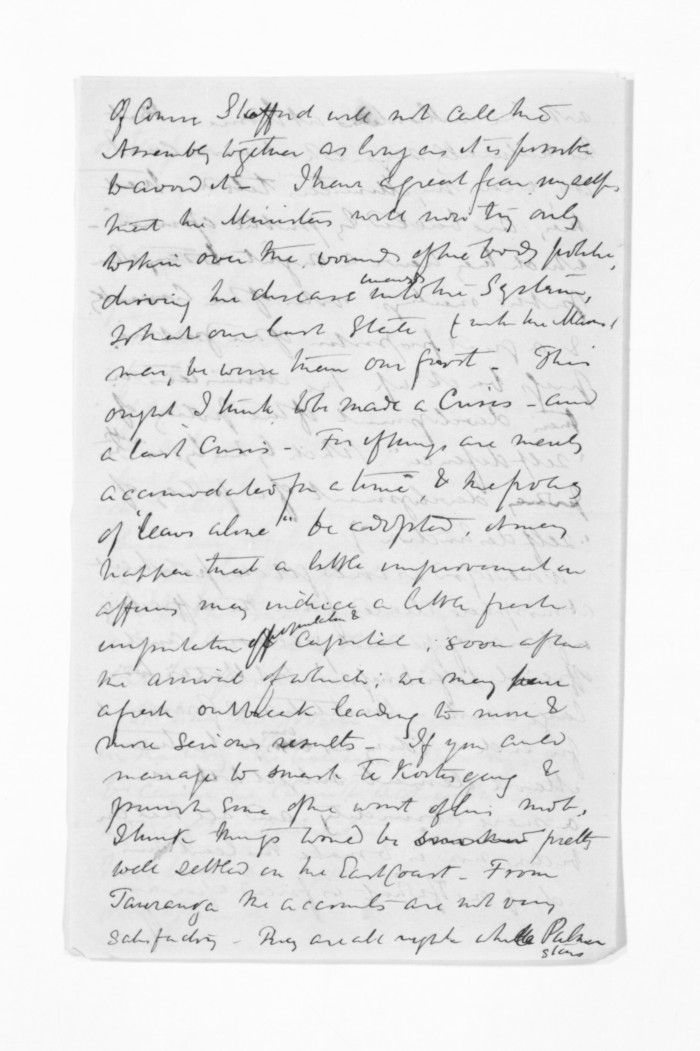 Of Course Stafford will not call the
Assembly together as long as it is possible
to avoid it - I have a great fear myself
that the Ministers will now try only
to skin over the wounds of the body politic,
driving the disease inwards into the System,
so that our last State (with the Maoris)
may, be worse than our first - This
ought I think to be made a Crisis - and
a last Crisis - For if things are merely
accomodated for a time, & the policy
of "leave alone" be adopted, it may
happen that a little improvement in
affairs may induce a little fresh
importation of population & Capital; soon after
the arrival of which; we may have
a fresh outbreak leading to more &
more serious results - If you could
manage to smash Te Kooti's gang &
punish some of the worst of his mob,
I think things would be pretty
well settled on the East Coast - From
Tauranga the accounts are not very
satisfactory - They are all right while Palmer
stays